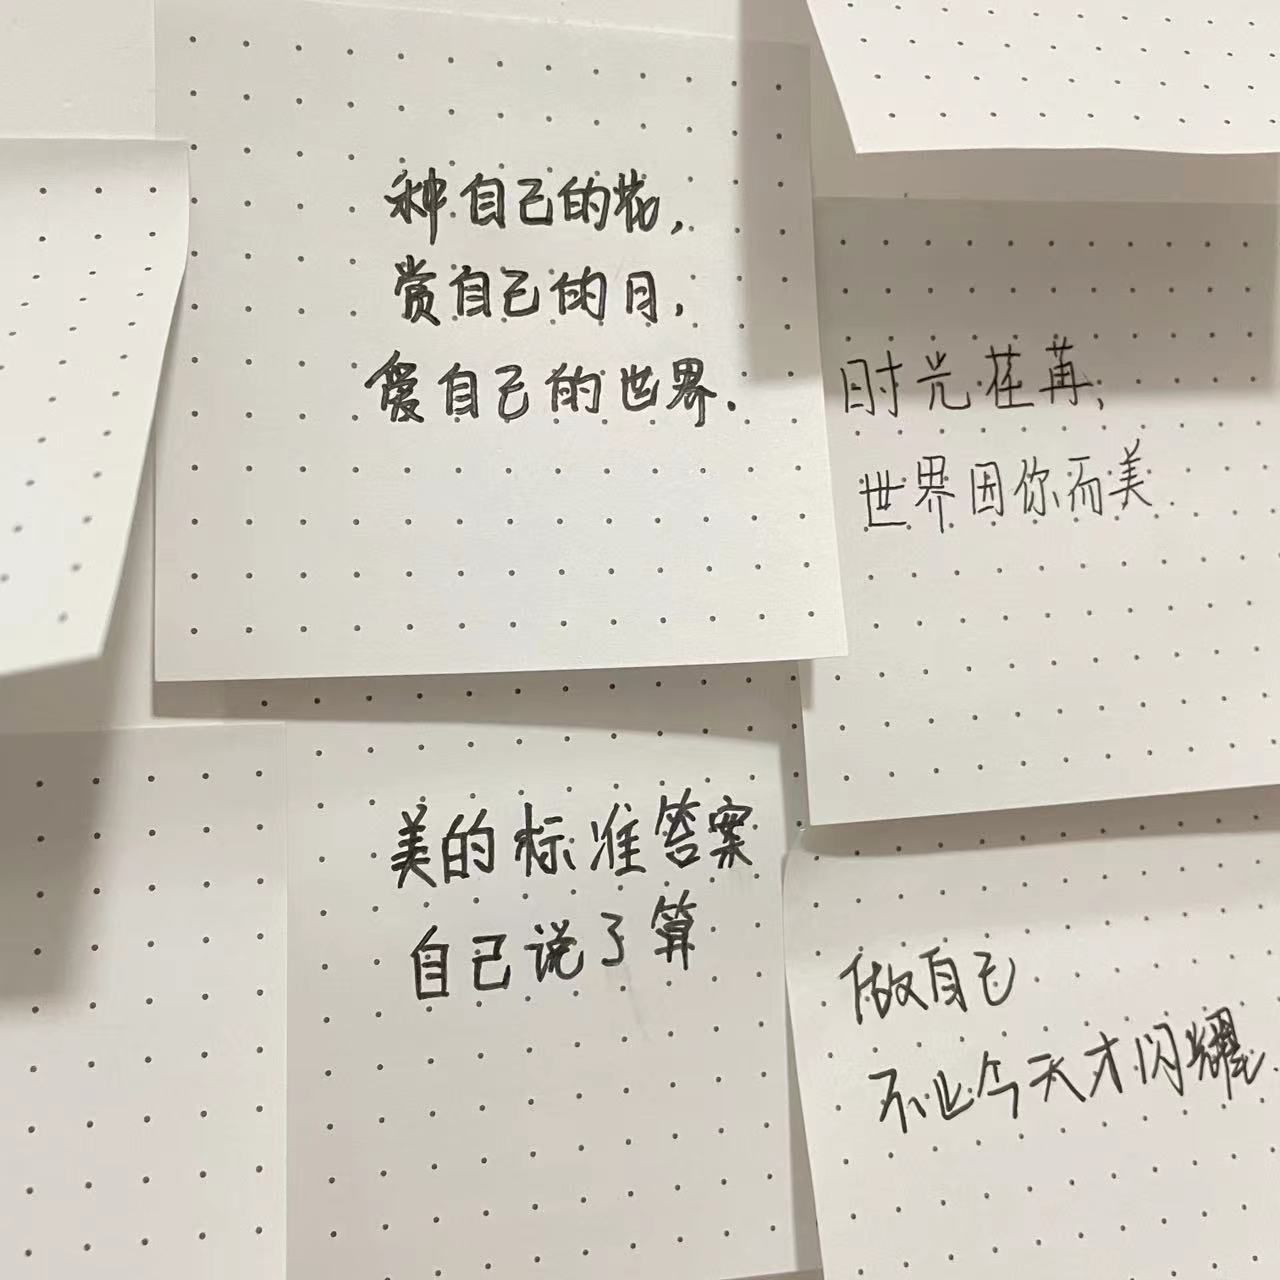 种自己的花,
赏自己的月,
爱自己的世界.
时光荏苒,
世界因你而美
美的标准答案
自己说了算
做自己
不止今天才闪耀